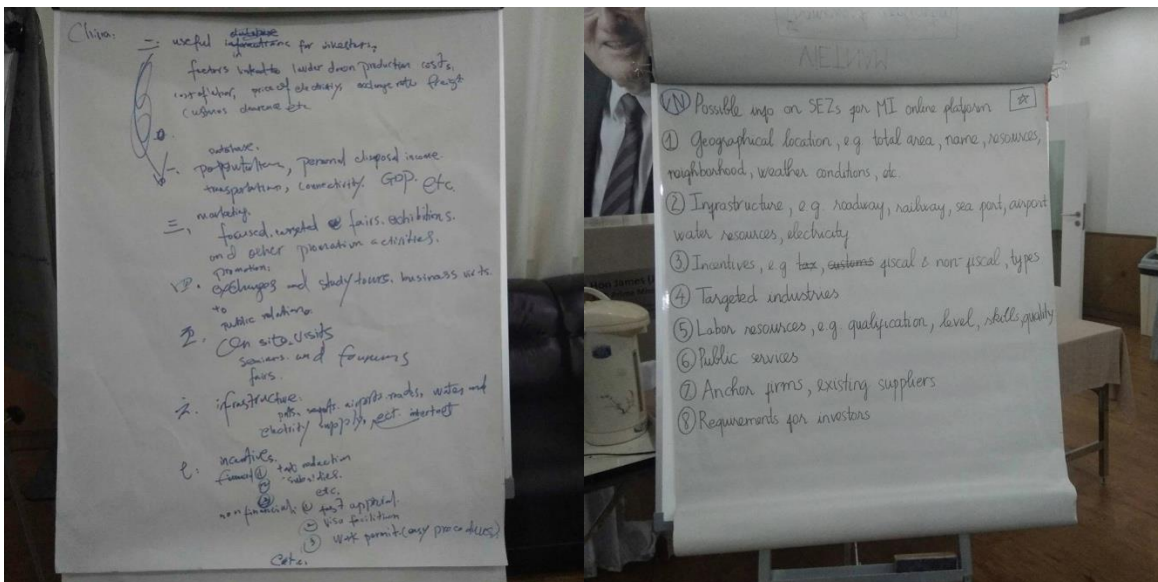 China.
二. useful database for
factors down production costs.
cost of labor, price of electricity exchange rate freight
customs clearance etc
database.
一. personal disposal income
transportation, connectivity. GDP. etc.
marketing.
三, focused, targeted fairs. exhibitions.
and other promotion activities.
promotion.
四. exchanges and study tours. business visits.
to
public relations
五. On site visits
and
fairs.
六. infrastructure.
airports. roads, water and
supply, internet
七. incentives.
① tax reduction
② subsidies.
③ etc.
non financial: ① fast approval.
② visa
③ work permit (easy procedures)
etc.
VIETNAM
VN Possible info on SEZs for MI online platform ☆
① Geographical location, e.g. total area, name, resources,
neighborhood, weather conditions, etc.
② Infrastructure, e.g. roadway, railway, sea port, airport
water resources, electricity
③ Incentives, e.g. tax, customs fiscal & non-fiscal, types
④ Targeted industries
⑤ Labor resources, e.g. qualification, level, skills, quality
⑥ Public services
⑦ Anchor firms, existing suppliers
⑧ Requirements for investors
Hon James